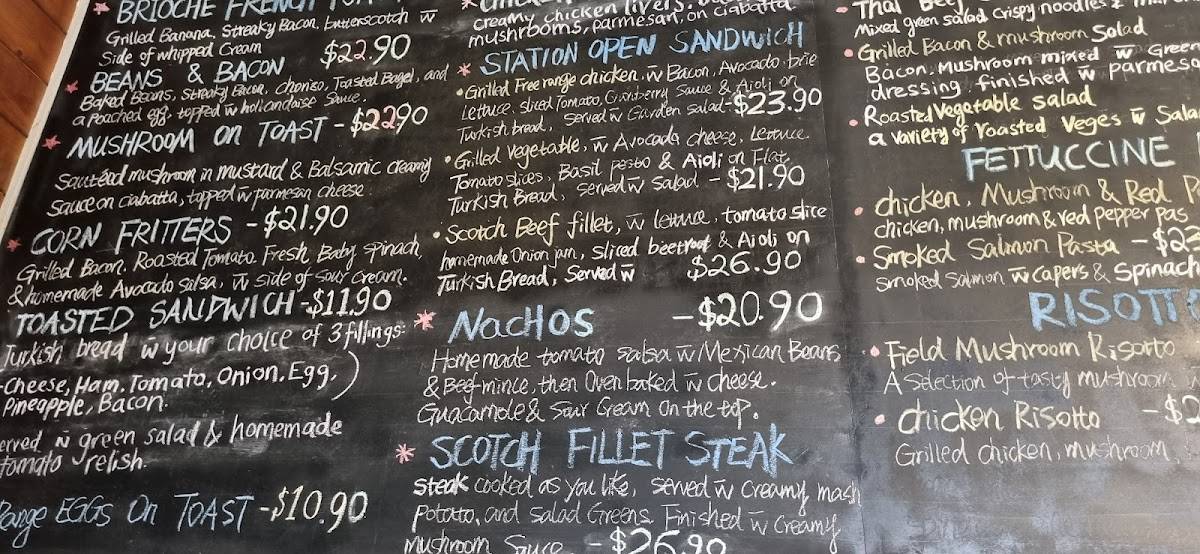 BRIOCHE FRENCH
Grilled Banana, Streaky Bacon, Butterscotch w̄
Side of whipped Cream $22.90
BEANS & BACON
Baked Beans, Streaky Bacon, chorizo, Toasted Bagel, and
a poached egg, topped w̄ hollandaise Sauce.
MUSHROOM on TOAST - $22.90
Sautéed mushroom in mustard & Balsamic creamy
Sauce on ciabatta, topped w̄ parmesan cheese.
CORN FRITTERS - $21.90
Grilled Bacon, Roasted Tomato, Fresh Baby Spinach,
& homemade Avocado salsa, w̄ side of Sour Cream.
TOASTED SANDWICH - $11.90
Turkish bread w̄ your choice of 3 fillings:
-Cheese, Ham, Tomato, Onion, Egg,)
Pineapple, Bacon.
erved w̄ green salad & homemade
tomato relish.
Range EGGS On TOAST - $10.90
creamy chicken livers,
mushrooms, parmesan, on ciabatta.
STATION OPEN SANDWICH
• Grilled Free range chicken, w̄ Bacon, Avocado, brie
Lettuce, sliced Tomato, Cranberry Sauce & Aioli on
Turkish bread, Served w̄ Garden salad - $23.90
• Grilled Vegetable, w̄ Avocado cheese, Lettuce.
Tomato slices, Basil pesto & Aioli on Flat
Turkish Bread, Served w̄ Salad - $21.90
• Scotch Beef fillet, w̄ lettuce, tomato slice
homemade Onion jam, sliced beetroot & Aioli on
Turkish Bread, Served w̄ $26.90
NACHOS - $20.90
Homemade tomato salsa w̄ Mexican Beans
& Beef mince, then Oven baked w̄ cheese.
Guacamole & Sour Cream On the top.
SCOTCH FILLET STEAK
steak cooked as you like, served w̄ Creamy mash
Potato, and Salad Greens. Finished w̄ Creamy
mushroom Sauce - $26.90
• Thai Beef
Mixed green salad Crispy noodles &
• Grilled Bacon & mushroom Salad
Bacon, Mushroom mixed w̄ Green
dressing, finished w̄ Parmesa
• Roasted Vegetable salad
a variety of roasted Veges w̄ Sala
FETTUCCINE
• chicken, Mushroom & Red P
chicken, mushroom & red pepper pas
• Smoked Salmon Pasta - $2
smoked Salmon w̄ capers & Spinach
RISOTTO
• Field Mushroom Risotto
A Selection of tasty mushroom
• chicken Risotto - $2
Grilled chicken, mushroom,